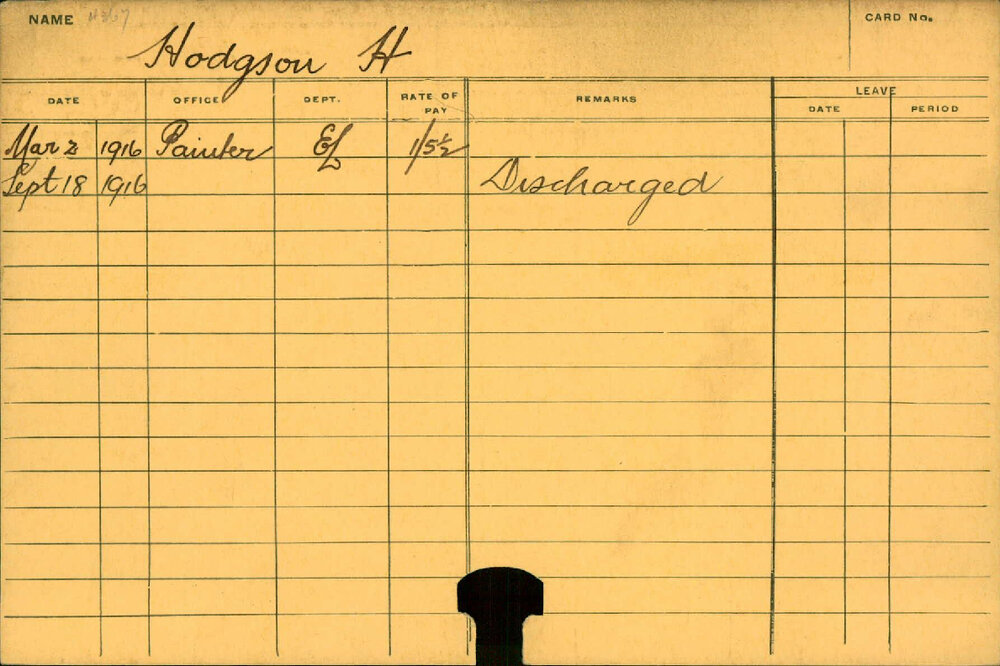 NAME
CARD No.
Hodgson H
DATE OFFICE DEPT. RATE OF PAY REMARKS LEAVE
DATE PERIOD
Mar 2 1916 Painter EL 1/5½
Sept 18 1916 Discharged